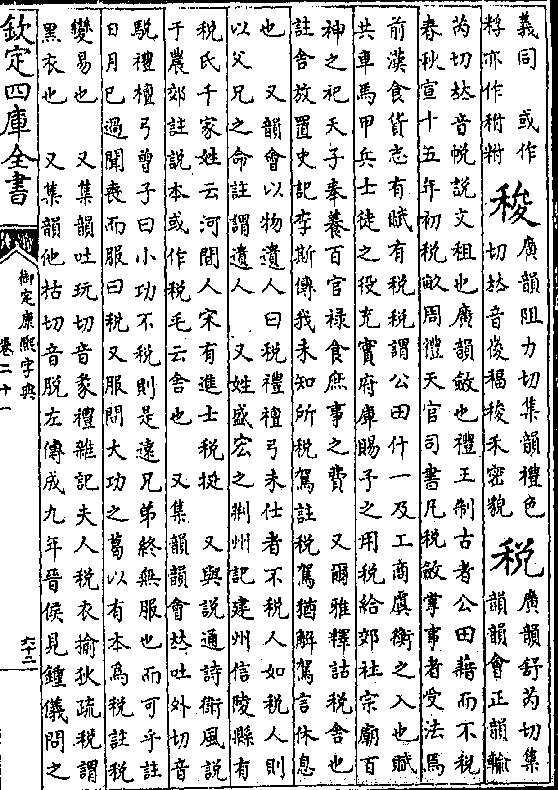 義同　或作
稃亦作粰䊇
稄
廣韻阻力切集韻禮色
切𠀤音㥄稫稄禾密貌
税
廣韻舒芮切集
韻韻會正韻輸
芮切𠀤音帨説文租也廣韻斂也禮王制古者公田藉而不税
春秋宣十五年初税畝周禮天官司書凡税斂掌事者受法焉
前漢食貨志有賦有税税謂公田什一及工商虞衡之入也賦
共車馬甲兵士徒之役充實府庫賜予之用税給郊社宗廟百
神之祀天子奉養百官禄食庶事之費　又爾雅釋詁税舍也
註舍放置史記李斯傳我未知所税駕註税駕猶解駕言休息
也　又韻會以物遺人曰税禮檀弓未仕者不税人如税人則
以父兄之命註謂遺人　又姓盛宏之荆州記建州信陵縣有
税氏千家姓云河間人宋有進士税挺　又與説通詩衛風説
于農郊註説本或作税毛云舍也　又集韻韻會𠀤吐外切音
駾禮檀弓曾子曰小功不税則是遠兄弟終無服也而可乎註
日月已過聞喪而服曰税又服問大功之葛以有本爲税註税
變易也　又集韻吐玩切音彖禮雜記夫人税衣揄狄疏税謂
黑衣也　又集韻他枯切音脱左傳成九年晉侯見鍾儀問之
欽定四庫全書
御定康熙字典
卷二十一
六十三